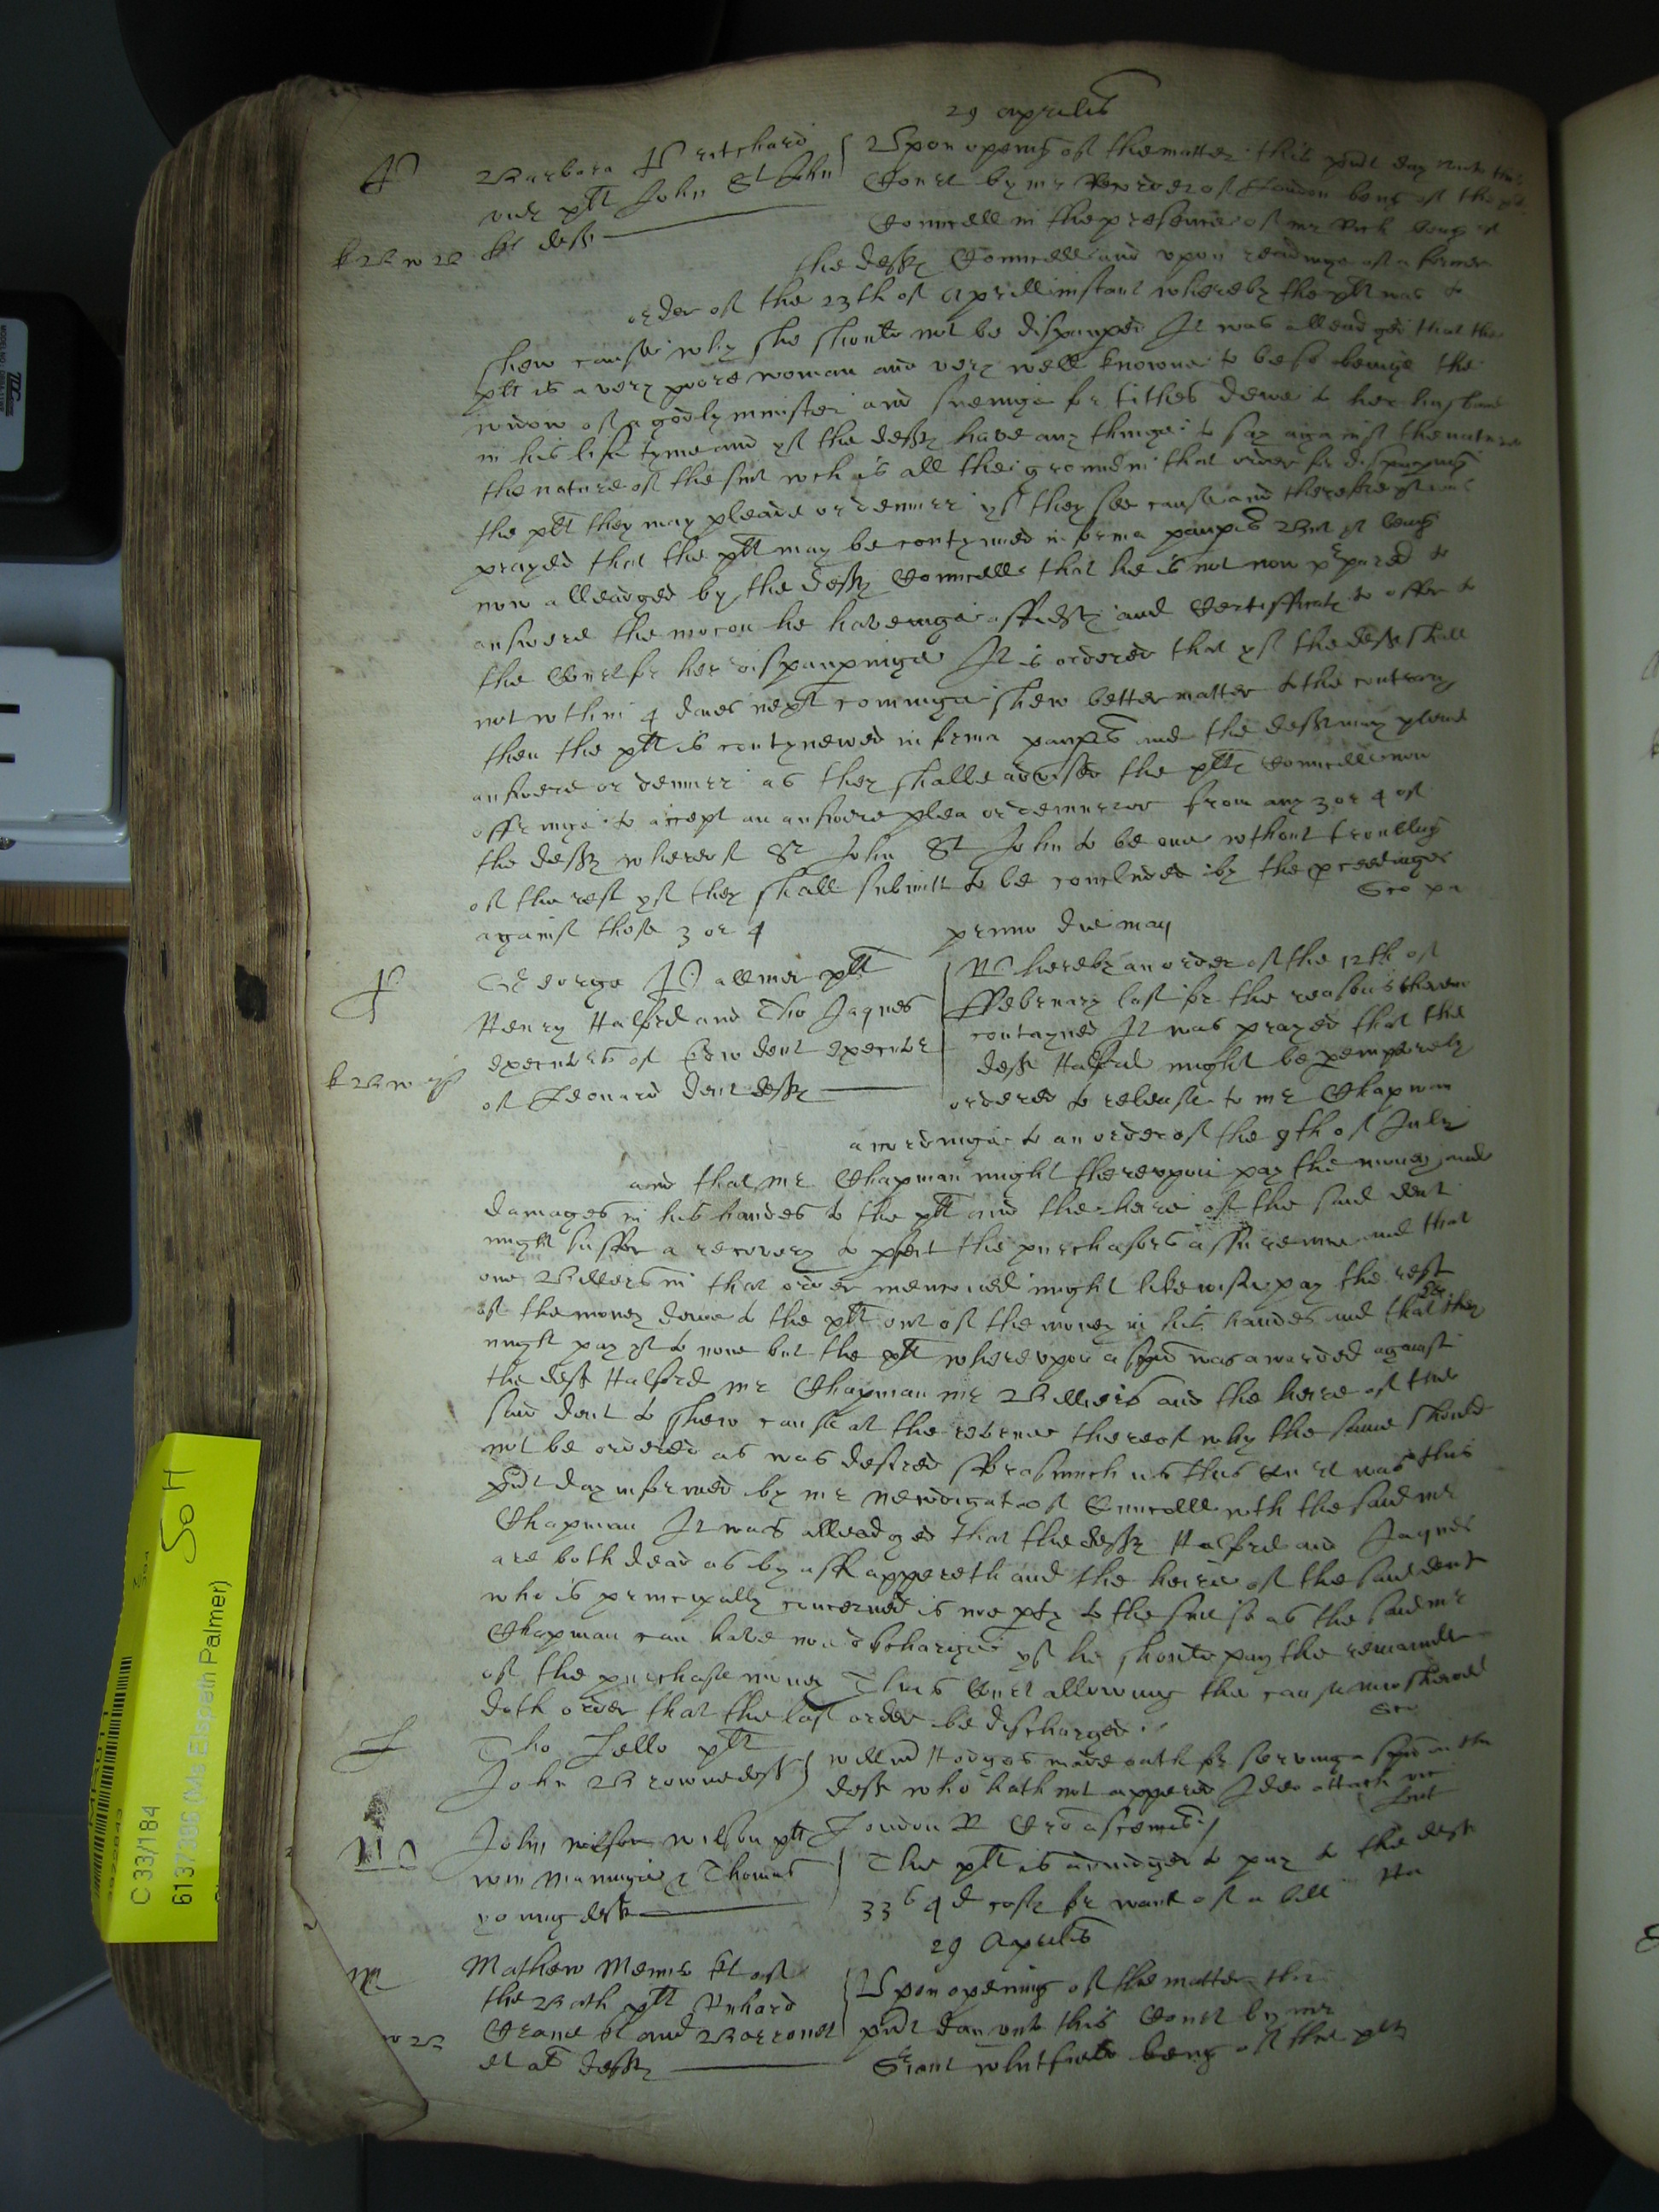 29 Aprilis
P
Barbara Pritchard
vid plt John St John
kt deft
Upon openinge of the matter this pñt day unto this
Court by mr Recorder of London beng of the plts
Councell in the presence of mr Rich beng of
the defts Councell and upon readinge of a former
order of the 23th of Aprill instant whereby the plt was to
shew cause why she should not be dispaupered It was alleadged that the
plt is a very poore woman and very well knowne to be so beinge the
widow of a godly minister and sueinge for tithes dewe to her husband
in his life tyme and yf the defts have any thinge to say against the nature
the nature of the suit wch is all the ground in that order for dispaupering
the plt they may pleade or demurr yf they see cause and therefore yt was
prayed that the plt may be contynued in forma paupis But yt beng
now alleadged by the defts Councell that he is not now prpared to
answere the mocon he haveinge affidts and Certifficats to offer to
the Court for her dispauperinge It is ordered that yf the deft shall
not wthin 4 daies next cominge shew better matter to the contrary
then the plt is contynewed in forma paupis and the deft may pleade
answere or demurr as they shalbe advised the plts Councell now
offringe to accept an answere plea or demurrer from any 3 or 4 of
the defts whereof Sr John St John to be one without troubling
of the rest yf they shall submitt to be concluded by the pceedinges
against those 3 or 4
primo die may
P
George Pallmer plt
Henry Halford and Tho Jaques
executors of Edw dent executor
of Leonard dent defts
Whereby an order of the 12th of
ffebruary last for the reasons therein
contayned It was prayed that the
deft Halford might be peremptorely
ordered to release to mr Chapman
accordinge to an order of the 9th of July
and that mr Chapman might thereupon pay the money and
damages in his handes to the plt and the heire of the said dent
might suffer a recovery to pfect the purchasors assurance and that
one Villers in that order menconed might likewise pay the rest
of the money dewe to the plt out of the money in his handes and that they
might pay yt to none but the plt whereupon a spa was awarded against
the deft Halford mr Chapman mr Villiers and the heire of the
said dent to shew cause at the retorne thereof why the same should
not be ordered as was desired fforasmuch as this Court was this
pñt day informed by mr Newdigate of Councell wth the said mr
Chapman It was alleadged that the defts Halford and Jaques
are both dead as by afft appereth and the heire of the said dent
who is principally concerned is noe pty to the suit so as the said mr
Chapman can have noe discharge yf he should pay the remainder
of the purchase money This Court allowing the cause now shewed
doth order that the last order be discharged
Tho Lello plt
John Browne deft
willm Hodges made oath for serving a spa on the
deft who hath not appered Ideo attach vic
London R Cro ascenc
John wilson wilson plt
wm Manninge & Thomas
young defts
The plt is adiudged to pay to the defts
33s 4d costs for want of a bill
29 Aprilis
M
Mathew Mennes kt of
the Bath plt Richard
Crane kt and Barronet
et al defts
Upon openinge of the matter this
pñt day unto this Court by mr
Sriant whitfield beng of the plts
C 33/184
So H
(Ms Elspeth Palmer)